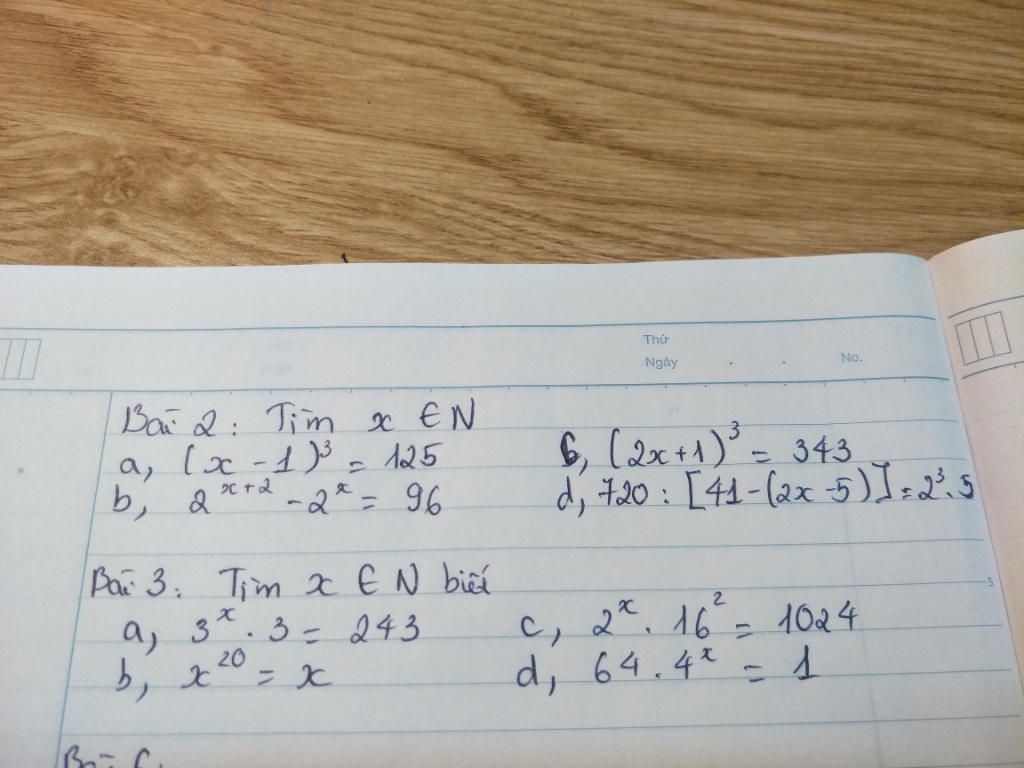 Thứ
Ngày . . No.
Bài 2 : Tìm x ∈ N
a, (x - 1)³ = 125
c, (2x + 1)³ = 343
b, 2^{x+2} - 2^x = 96
d, 720 : [41 - (2x - 5)] = 2³ . 5
5
Bài 3 : Tìm x ∈ N biết
a, 3^x . 3 = 243
c, 2^x . 16² = 1024
b, x^{20} = x
d, 64 . 4^x = 1